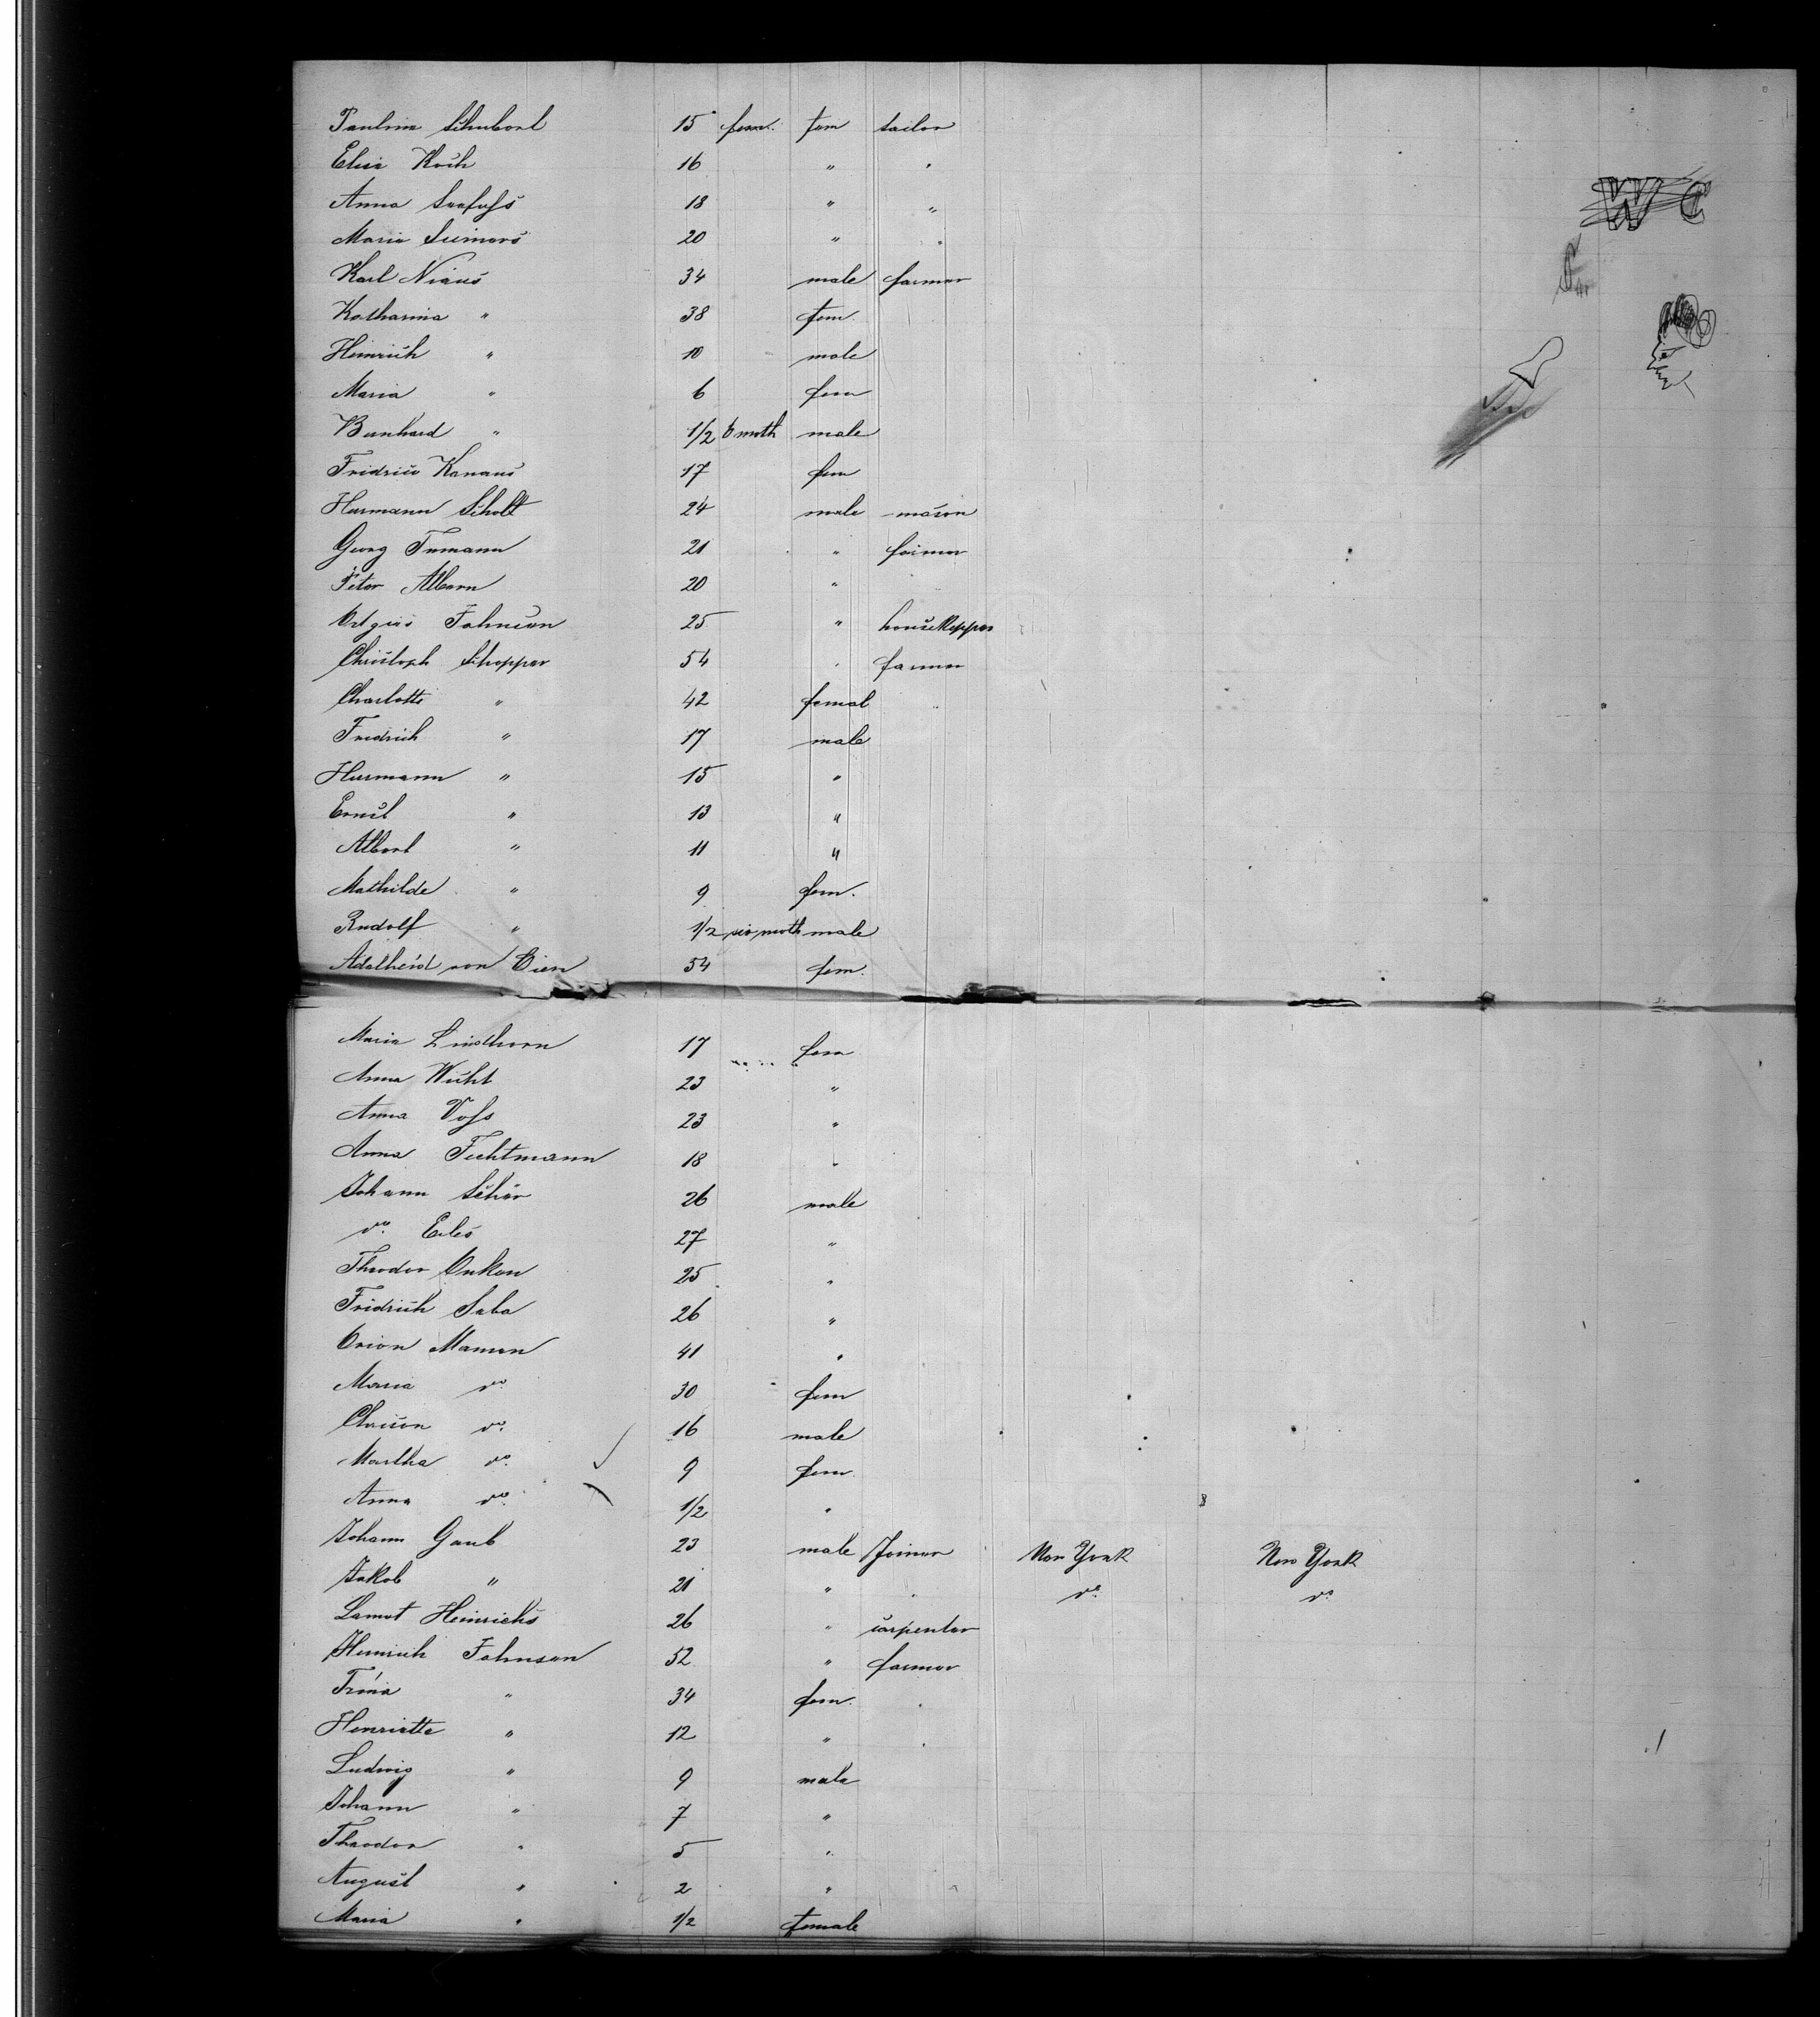 Paulina Schubert 15 fem. fem tailor
Elise Koch 16 " "
Anna 18 " "
Maria 20 " "
Karl Niaus 34 male farmer
Katharina " 38 fem.
Heinrich " 10 male
Maria " 6 fem
Bernhard " 1/2 6 month male
Fridrico Kanaus 17 fem
Hermann Scholt 24 male mason
Georg Tiemann 21 " farmer
Peter Albern 20 "
Johnson 25 " housekepper
Christoph Schepper 54 " farmer
Charlotte " 42 femal
Fredrich " 17 male
Hermann " 15 "
Ernst " 13 "
Albert " 11 "
Mathilde " 9 fem.
Rudolf " 1/2 six month male
Adelheid von Oien 54 fem.
Maria Lindhorn 17 fem
Anna Wicht 23 "
Anna Voss 23 "
Anna Fechtmann 18 "
Johann Schör 26 male
do. Eiles 27 "
Theodor Onken 25 "
Fridrich Saba 26 "
Orion Mamen 41 "
Maria do. 30 fem
do. 16 male
Martha do. 9 fem
Anna do. 1/2 "
Johann Gaub 23 male Joiner New York New York
Jakob " 21 " " do. do.
Heinrichs 26 " carpenter
Heinrich Johnson 52 " farmer
Trina " 34 fem. "
Henriette " 12 "
Ludwig " 9 male
Johann " 7 "
Theodor " 5 "
August " 2 "
Maria " 1/2 female
W C